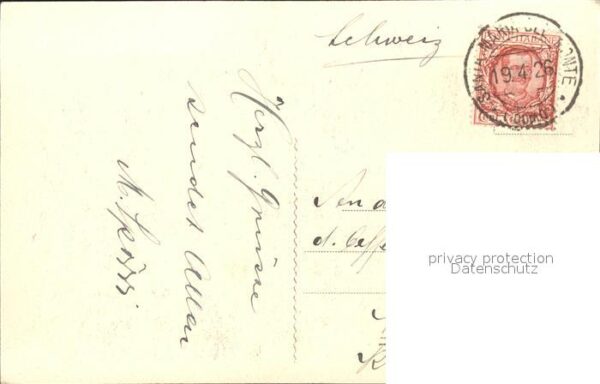 Schweiz
SANTA MARIA DEL MONTE
19.4.26
(COMO)
Herzl. Grüsse
sendet Allen
M.
An d
d.
privacy protection
Datenschutz